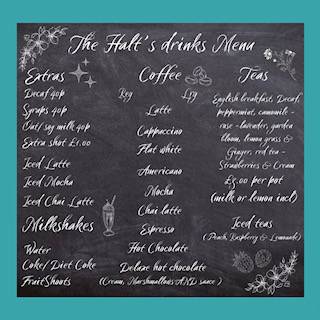 The Halt's drinks Menu
Extras
Decaf 40p
Syrups 40p
Oat/soy milk 40p
Extra shot £1.00
Iced Latte
Iced Mocha
Iced Chai Latte
Milkshakes
Water
Coke/Diet Coke
FruitShoots
Coffee
Reg Lrg
Latte
Cappuccino
Flat white
Americano
Mocha
Chai latte
Espresso
Hot Chocolate
Deluxe hot chocolate
((Cream, Marshmallows AND sauce )
Teas
English breakfast, Decaf,
peppermint, camomile -
rose - lavender, garden
bloom, lemon grass &
Ginger, red tea -
Strawberries & Cream
£5.00 per pot
(milk or lemon incl)
Iced teas
(Peach, Raspberry & Lemonade)